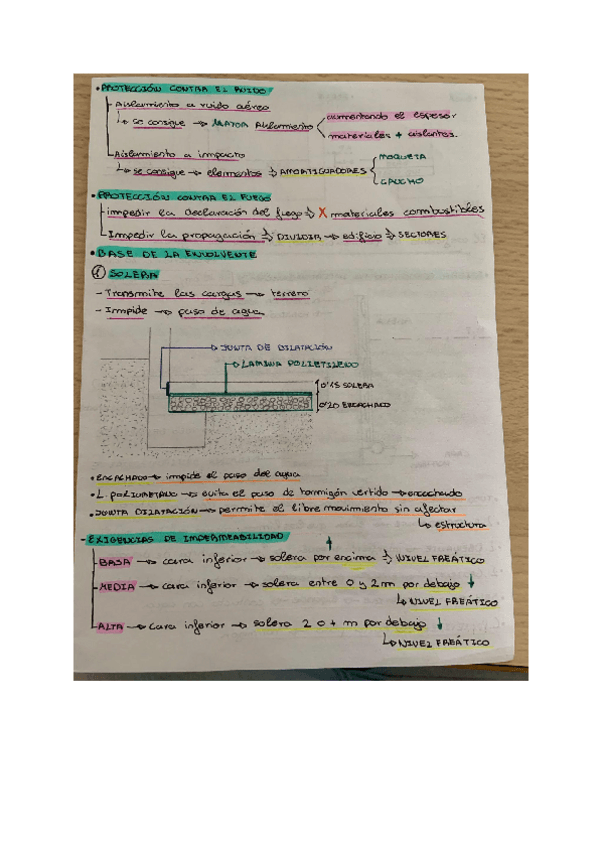 • PROTECCIÓN CONTRA EL RUIDO
Aislamiento a ruido aéreo
↳ se consigue → MAYOR Aislamiento
aumentando el espesor
materiales + aislantes.
Aislamiento a impacto
↳ se consigue → elementos ⇒ AMORTIGUADORES
MOQUETA
CAUCHO
• PROTECCIÓN CONTRA EL FUEGO
impedir la declaración del fuego ⇒ X materiales combustibles
Impedir la propagación ⇒ DIVIDIR → edificio ⇒ SECTORES
• BASE DE LA ENVOLVENTE
① SOLERA
- Transmite las cargas → terreno
- Immpide → paso de agua
→ JUNTA DE DILATACIÓN
→ LAMINA POLIETILENO
0'15 SOLERA
0'20 ENCACHADO
• ENCACHADO → impide el paso del agua
• L. → evita el paso de hormigón vertido → encachado
• JUNTA DILATACIÓN → permite el libre movimiento sin afectar
↳ estructura
- EXIGENCIAS DE IMPERMEABILIDAD
BAJA → cara inferior → solera por encima ⇒ NIVEL FREÁTICO
MEDIA → cara inferior → solera entre 0 y 2m por debajo ↓
↳ NIVEL FREÁTICO
ALTA → cara inferior → solera 2 o + m por debajo ↓
↳ NIVEL FREÁTICO